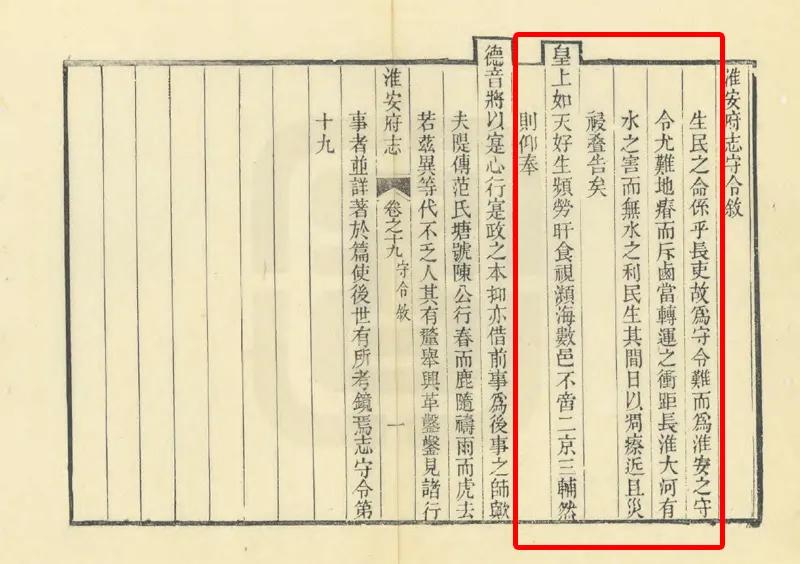 淮安府志守令敘
生民之命係乎長吏故為守令難而為淮安之守
令尤難地瘠而斥鹵當轉運之衝距長淮大河有
水之害而無水之利民生其間日以凋瘵近且災
祲叠告矣
皇上如天好生頻勞旰食視瀕海數邑不啻二京三輔然
則仰奉
德音將以寔心行寔政之本抑亦借前事為後事之師歟
夫隄傳范氏塘號陳公行春而鹿隨禱雨而虎去
若茲異等代不乏人其有釐舉興革鑿鑿見諸行
淮安府志 卷之十九 守令敘 一
事者並詳著於篇使後世有所考鏡焉志守令第
十九